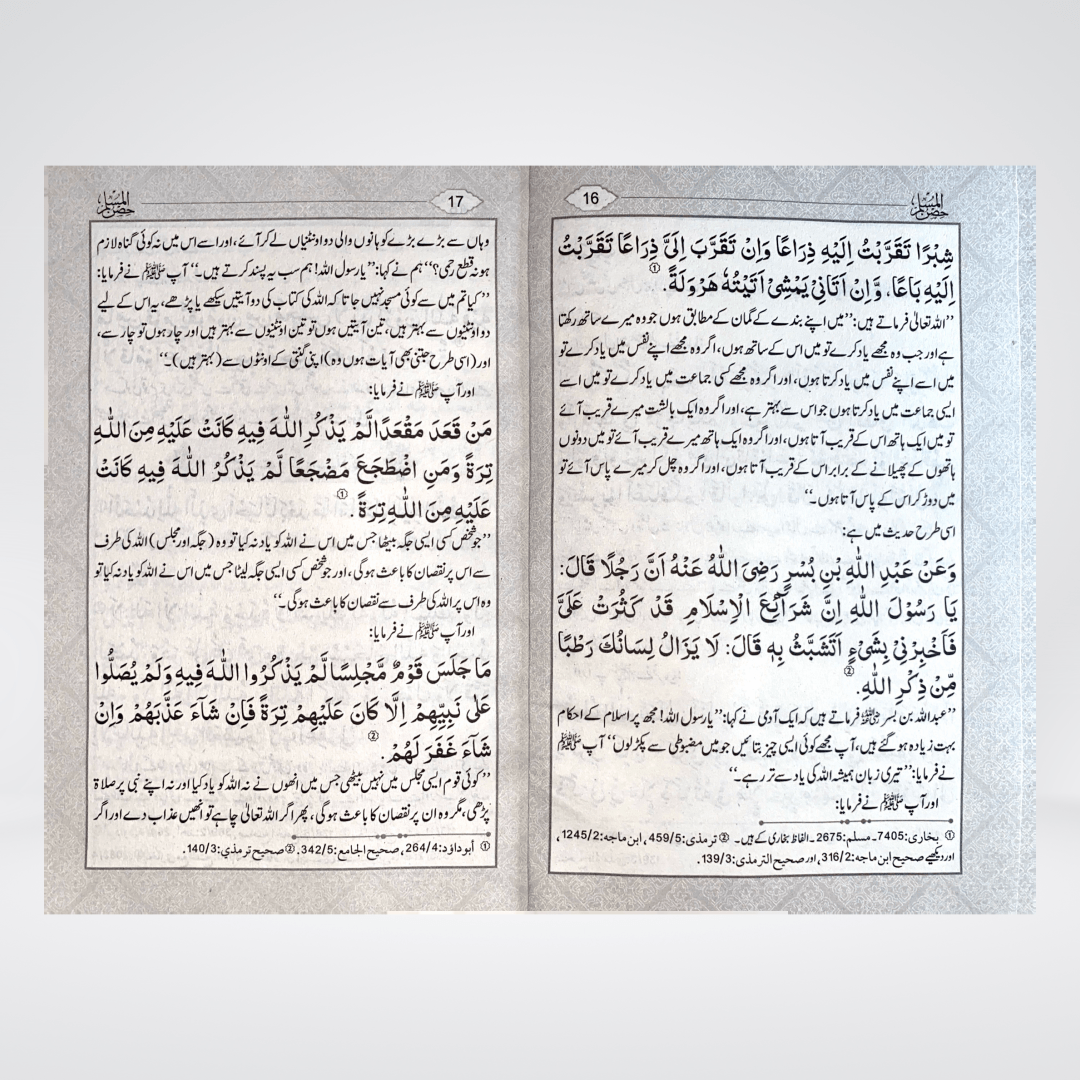 حصن المسلم
16
شِبْرًا تَقَرَّبْتُ اِلَيْهِ ذِرَاعًا وَاِنْ تَقَرَّبَ اِلَيَّ ذِرَاعًا تَقَرَّبْتُ
اِلَيْهِ بَاعًا، وَّاِنْ اَتَانِيْ يَمْشِيْ اَتَيْتُهٗ هَرْوَلَةً.①
’’اللہ تعالیٰ فرماتے ہیں: ’’میں اپنے بندے کے گمان کے مطابق ہوں جو وہ میرے ساتھ رکھتا
ہے اور جب وہ مجھے یاد کرے تو میں اس کے ساتھ ہوں، اگر وہ مجھے اپنے نفس میں یاد کرے تو
میں اسے اپنے نفس میں یاد کرتا ہوں، اور اگر وہ مجھے کسی جماعت میں یاد کرے تو میں اسے
ایسی جماعت میں یاد کرتا ہوں جو اس سے بہتر ہے، اور اگر وہ ایک بالشت میرے قریب آئے
تو میں ایک ہاتھ اس کے قریب آتا ہوں، اور اگر وہ ایک ہاتھ میرے قریب آئے تو میں دونوں
ہاتھوں کے پھیلانے کے برابر اس کے قریب آتا ہوں، اور اگر وہ چل کر میرے پاس آئے تو
میں دوڑ کر اس کے پاس آتا ہوں۔‘‘
اسی طرح حدیث میں ہے:
وَعَنْ عَبْدِ اللّٰهِ بْنِ بُسْرٍ رَضِيَ اللّٰهُ عَنْهُ اَنَّ رَجُلًا قَالَ:
يَا رَسُوْلَ اللّٰهِ اِنَّ شَرَآئِعَ الْاِسْلَامِ قَدْ كَثُرَتْ عَلَيَّ
فَاَخْبِرْنِيْ بِشَيْءٍ اَتَشَبَّثُ بِهٖ قَالَ: لَا يَزَالُ لِسَانُكَ رَطْبًا
مِّنْ ذِكْرِ اللّٰهِ.②
’’عبداللہ بن بسر رضی اللہ عنہ فرماتے ہیں کہ ایک آدمی نے کہا: ’’یا رسول اللہ! مجھ پر اسلام کے احکام
بہت زیادہ ہو گئے ہیں، آپ مجھے کوئی ایسی چیز بتائیں جو میں مضبوطی سے پکڑ لوں‘‘ آپ ﷺ
نے فرمایا: ’’تیری زبان ہمیشہ اللہ کی یاد سے تر رہے۔‘‘
اور آپ ﷺ نے فرمایا:
① بخاری: 7405۔ مسلم: 2675۔ الفاظ بخاری کے ہیں۔ ② ترمذی: 459/5، ابن ماجہ: 1245/2،
اور دیکھیے صحیح ابن ماجہ: 316/2، اور صحیح الترمذی: 139/3.
17
حصن المسلم
وہاں سے بڑے بڑے کوہانوں والی دو اونٹنیاں لے کر آئے، اور اسے اس میں نہ کوئی گناہ لازم
ہو نہ قطع رحمی؟‘‘ ہم نے کہا: ’’یا رسول اللہ! ہم سب یہ پسند کرتے ہیں۔‘‘ آپ ﷺ نے فرمایا:
’’کیا تم میں سے کوئی مسجد نہیں جاتا کہ اللہ کی کتاب کی دو آیتیں سیکھے یا پڑھے، یہ اس کے لیے
دو اونٹنیوں سے بہتر ہیں، تین آیتیں ہوں تو تین اونٹنیوں سے بہتر ہیں اور چار ہوں تو چار سے،
اور (اسی طرح جتنی بھی آیات ہوں وہ) اپنی گنتی کے اونٹوں سے (بہتر ہیں)۔‘‘
اور آپ ﷺ نے فرمایا:
مَنْ قَعَدَ مَقْعَدًا لَّمْ يَذْكُرِ اللّٰهَ فِيهِ كَانَتْ عَلَيْهِ مِنَ اللّٰهِ
تِرَةً وَمَنِ اضْطَجَعَ مَضْجَعًا لَّمْ يَذْكُرُ اللّٰهَ فِيهِ كَانَتْ
عَلَيْهِ مِنَ اللّٰهِ تِرَةً.①
’’جو شخص کسی ایسی جگہ بیٹھا جس میں اس نے اللہ کو یاد نہ کیا تو وہ (جگہ اور مجلس) اللہ کی طرف
سے اس پر نقصان کا باعث ہوگی، اور جو شخص کسی ایسی جگہ لیٹا جس میں اس نے اللہ کو یاد نہ کیا تو
وہ اس پر اللہ کی طرف سے نقصان کا باعث ہوگی۔‘‘
اور آپ ﷺ نے فرمایا:
مَا جَلَسَ قَوْمٌ مَّجْلِسًا لَّمْ يَذْكُرُوا اللّٰهَ فِيهِ وَلَمْ يُصَلُّوا
عَلٰى نَبِيِّهِمْ اِلَّا كَانَ عَلَيْهِمْ تِرَةً فَاِنْ شَآءَ عَذَّبَهُمْ وَاِنْ
شَآءَ غَفَرَ لَهُمْ.②
’’کوئی قوم ایسی مجلس میں نہیں بیٹھی جس میں انھوں نے نہ اللہ کو یاد کیا اور نہ اپنے نبی پر صلاۃ
پڑھی، مگر وہ ان پر نقصان کا باعث ہوگی، پھر اگر اللہ تعالیٰ چاہے تو انھیں عذاب دے اور اگر
① أبو داؤد: 264/4، صحيح الجامع: 342/5. ② صحيح ترمذي: 140/3.